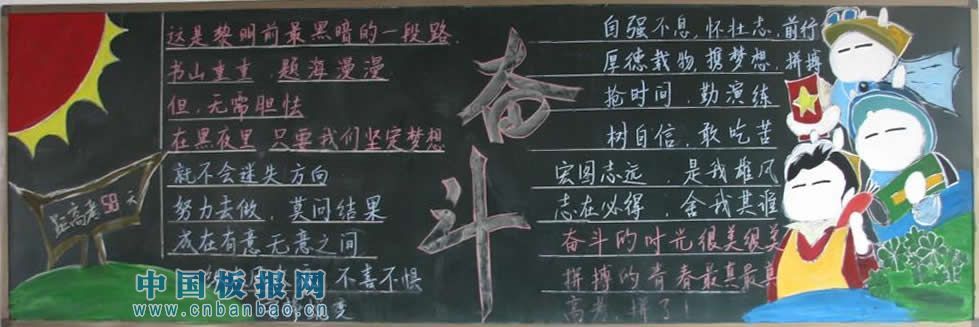 这是黎明前最黑暗的一段路
书山重重，题海漫漫
但，无需胆怯
在黑夜里，只要我们坚定梦想
就不会迷失方向
努力去做，莫问结果
成在有意无意之间
不喜不惧
距高考59天
奋斗
自强不息，怀壮志，前行
厚德载物，携梦想，拼搏
抢时间，勤演练
树自信，敢吃苦
宏图志远，是我雄风
志在必得，舍我其谁
奋斗的时光很美很美
拼搏的青春最真最真
高考，拼了！
中国板报网
www.cnbanbao.cn